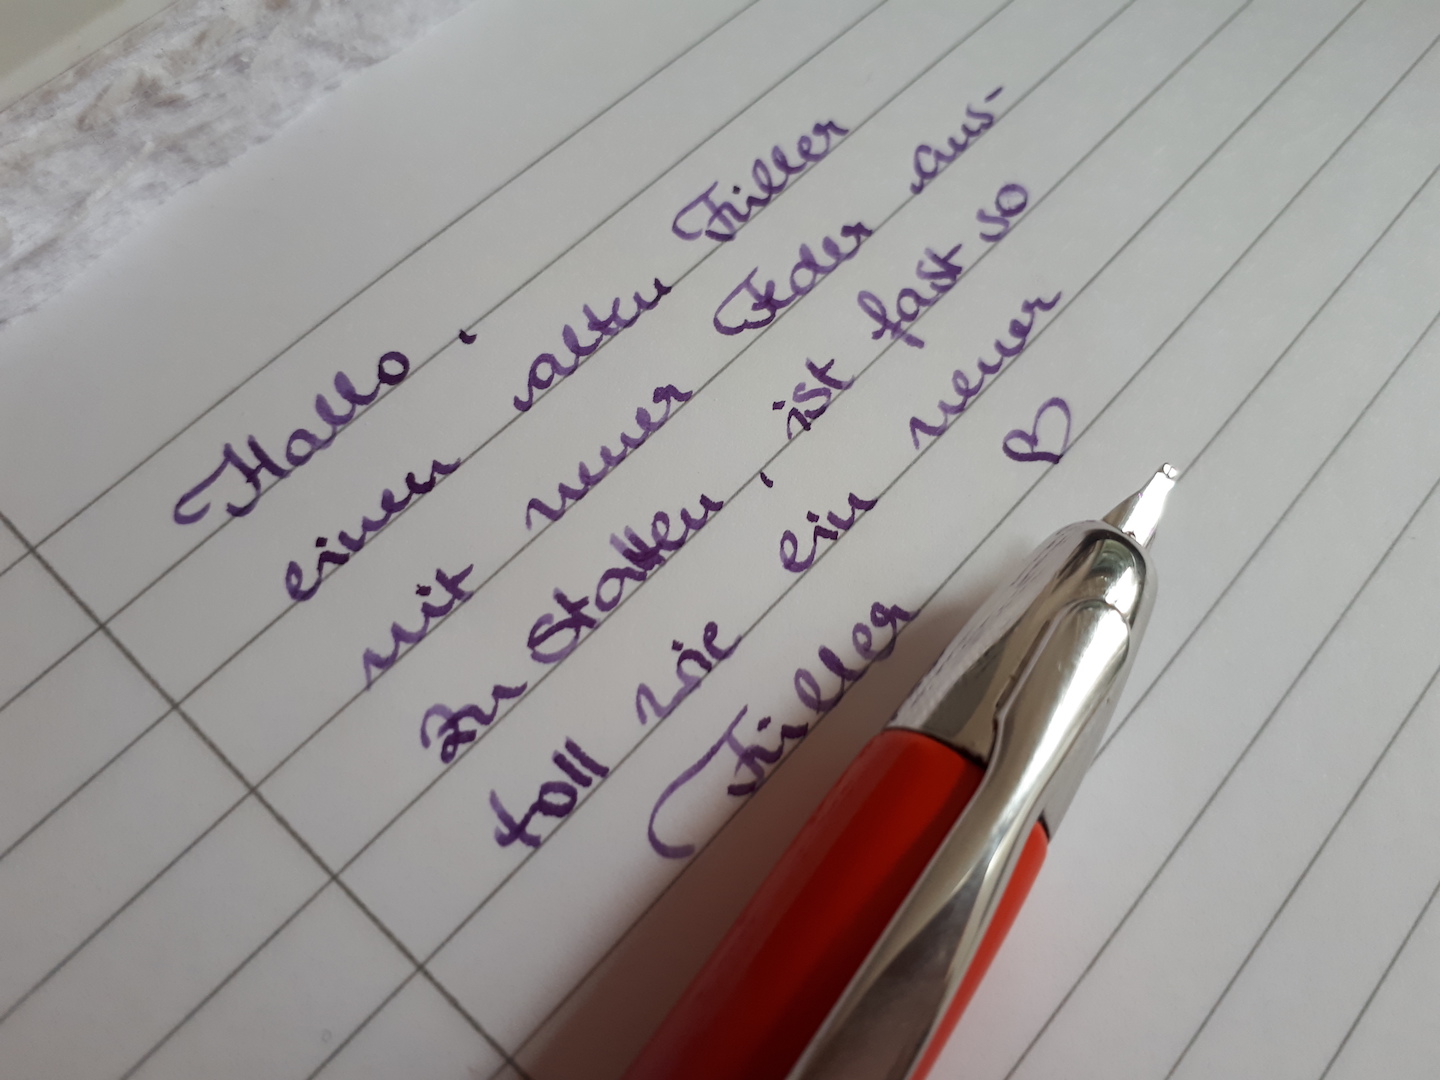 Hallo,
einen alten Füller
mit neuer Feder aus-
zu statten, ist fast so
toll wie ein neuer
Füller ♡